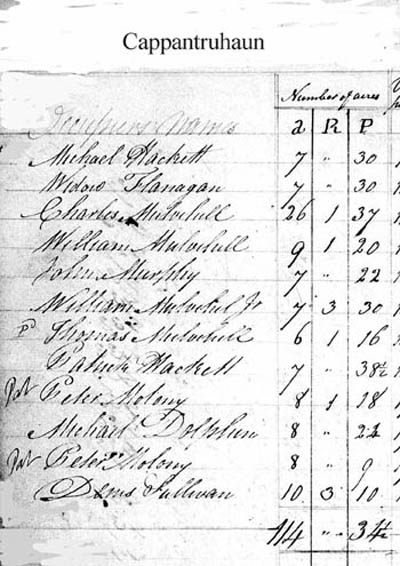 Cappantruhaun
Number of acres
Occupiers Names a R P
Michael Hackett 7 " 30
Widow Flanagan 7 " 30
Charles Mulvehill 26 1 37
William Mulvehill 9 1 20
John Murphy 7 " 22
William Mulvehil Jr 7 3 30
P Thomas Mulvehill 6 1 16
Patrick Hackett 7 " 38½
Pat Peter Molony 8 1 18
Michael Dolphin 8 " 24
Pat Peter Molony 8 " 9
Denis Sullivan 10 3 10
114 " 34½